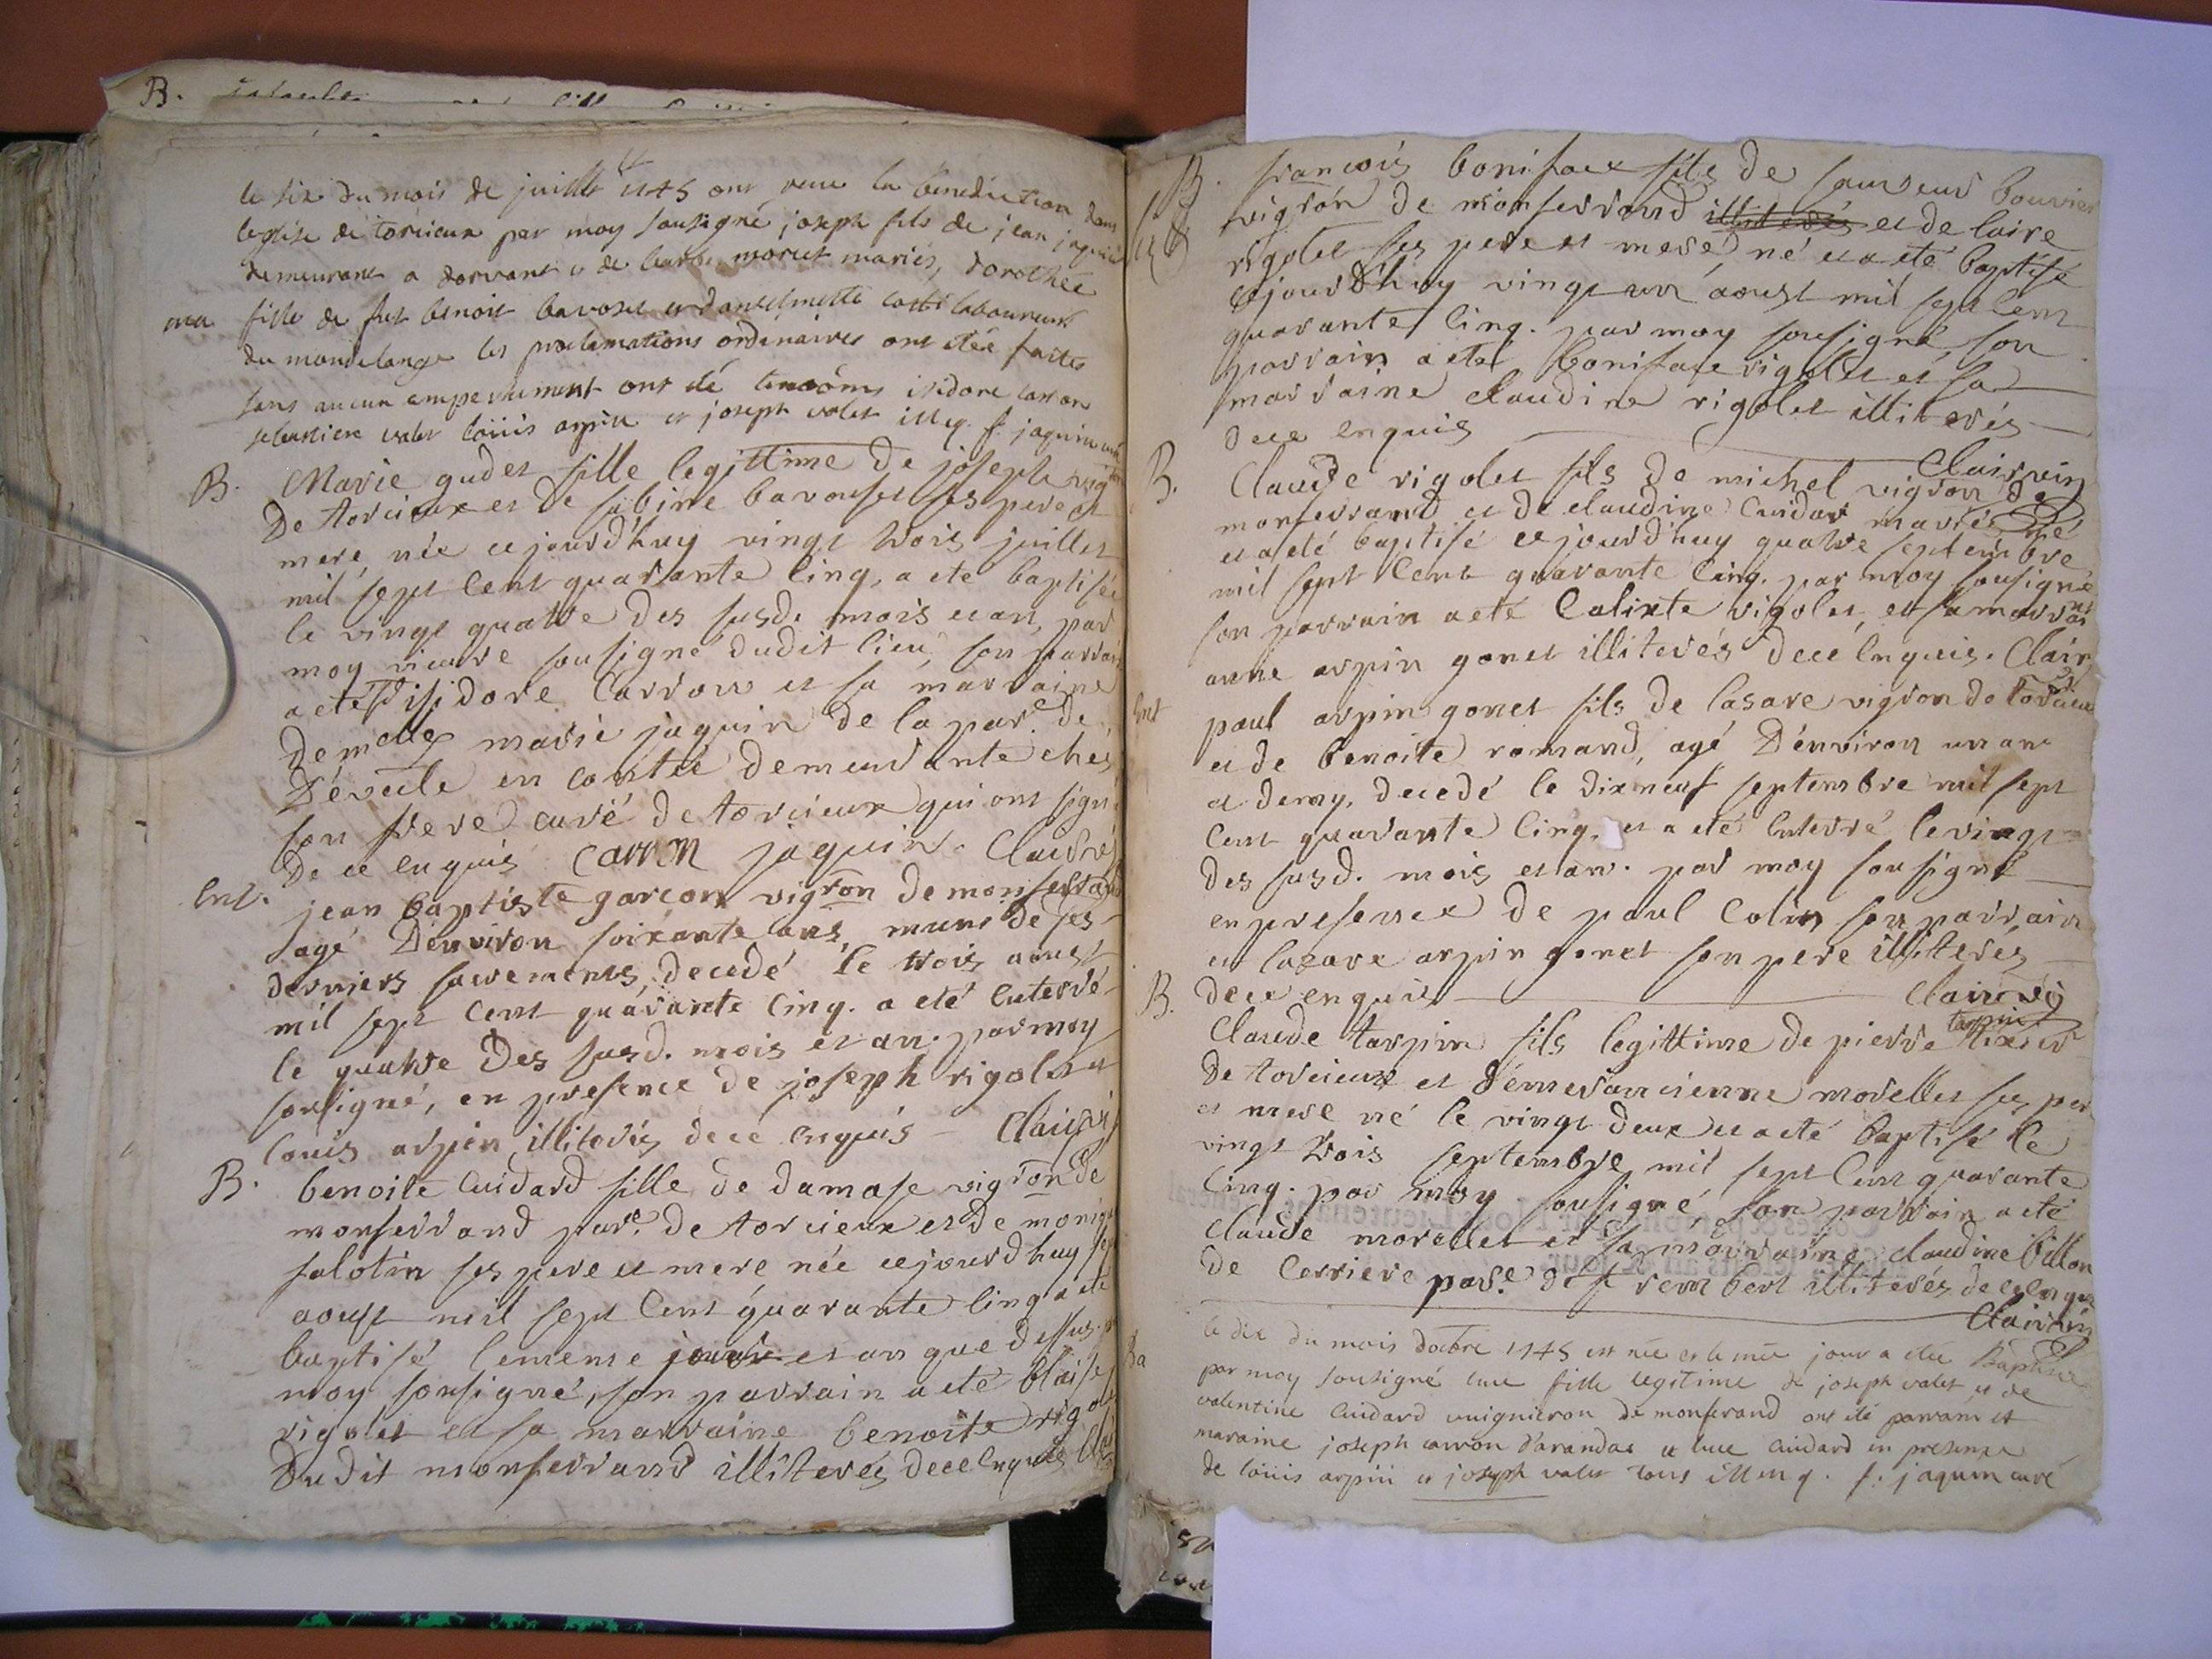 B.
le six du mois de juillet 1745 ont receu la benediction dans
leglise de torcieux par moy sousigné joseph fils de jean jaquin
demeurant a dorvant et de morlet mariés, dorothée
ma fille de fut benoit bavoset et danthelmette laboureurs
du mondelange les proclamations ordinaires ont étée faites
sans aucun ampechement ont été temoins isidore carron
sebastien valet loüis arpin et joseph valet illeq. f. jaquin curé
B. Marie gudet fille legittime de joseph vigron
De torcieux et de sabine bavouset ses pere et
mere, née cejourd'huy vingt trois juillet
mil sept cent quarante cinq, a ete baptisée
le vingt quatre des susd. mois et an, par
moy vicaire sousigné dudit lieu, son parrain
a eté isidore Carron et sa marraine
Demelle marie jaquin de la par.e de
en comté demeurante chés
son frere curé de torcieux qui ont signé
De ce enquis Carron jaquin. Clairvin
Ent. jean baptiste garcon vigron de monferrand
agé D'environ soixante ans, muni de ses
derniers sacrements, decedé le trois aoust
mil sept cent quarante cinq. a eté enterré
le quatre Des susd. mois et an. par moy
sousigné, en presence de joseph rigolet et
louis arpin illiterés dece enquis - Clairvin
B. benoite Cuidard fille de damase vigron de
monferrand par.e de torcieux et de monique
salotin ses pere et mere née cejourd'huy sept
aoust mil sept cent quarante cinq a eté
baptisé lememe jour et an que dessus par
moy sousigné, son parrain a eté blaise
rigolet et sa marraine benoite rigolet
Dudit monferrand illiterés dece enquis
B. francois boniface fils de sauveur bouvier
vigron de monferrand illiterés et de claire
rigolet ses pere et mere, né et a eté baptisé
cejourd'huy vingt un aoust mil sept cent
quarante cinq. par moy sousigné, son
parrain a eté boniface rigolet et sa
marraine claudine rigolet illiterés
dece enquis
Clairvin
B. Claude rigolet fils de michel vigron de
monferrand et de claudine Cuidar mariés né
et a eté baptisé cejourd'huy quatre septembre
mil sept cent quarante cinq. par moy sousigné
son parrain a eté Calixte rigolet, et sa marraine
anne arpin gonet illiterés dece enquis. Clairvin
Ent paul arpin gonet fils de lasare vigron de torcieux
et de benoite romand, agé D'environ un an
et demy, decedé le dixneuf septembre mil sept
cent quarante cinq, et a eté enterré le vingt
des susd. mois et an. par moy sousigné
en presence de paul Colin son parrain
et lazare arpin gonet son pere illiterés
dece enquis Clairvin
B. Claude tarpin fils legittime de pierre tarpin tixier
De torcieux et d'emerancienne morellet ses pere
et mere né le vingt deux et a eté baptisé le
vingt trois septembre mil sept cent quarante
cinq. par moy sousigné son parrain a eté
Claude morellet et sa marraine claudine billon
de Cerriere par.e de st rembert illiterés dece enquis
Clairvin
Ba le dix du mois doctobre 1745 est née et le mée jour a étée Baptisée
par moy sousigné luce fille legitime de joseph valet et de
valentine Cuidard vuigneron de monferand ont été parrain et
maraine joseph carron d'arandas et luce Cuidard en presence
de loüis arpin et joseph valet tous ill enq. f. jaquin curé